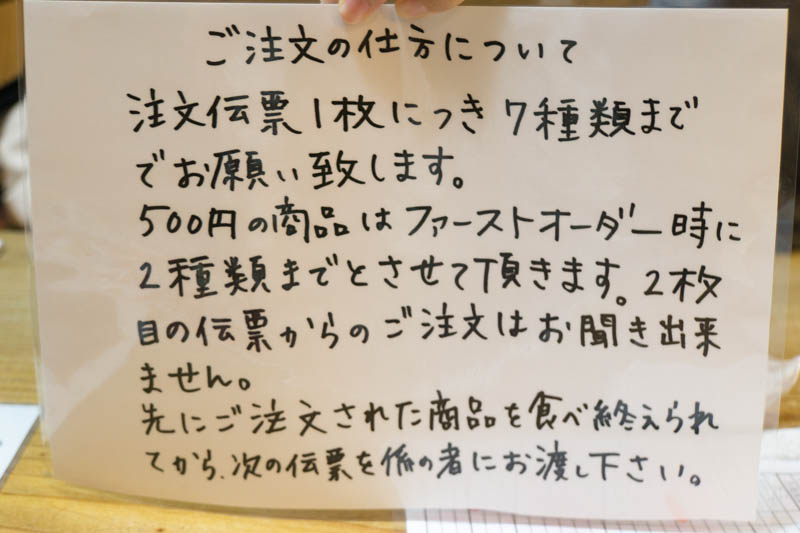 ご注文の仕方について
注文伝票1枚につき7種類まで
でお願い致します。
500円の商品はファーストオーダー時に
2種類までとさせて頂きます。2枚
目の伝票からのご注文はお聞き出来
ません。
先にご注文された商品を食べ終えられ
てから、次の伝票を係の者にお渡し下さい。